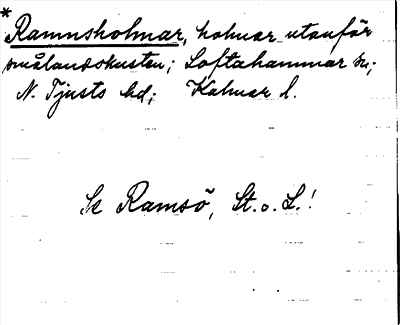 *Ramnsholmar, holmar utanför
smålandskusten; Loftahammar sn;
N. Tjusts hd; Kalmar l.
Se Ramsö, St. o. L.!